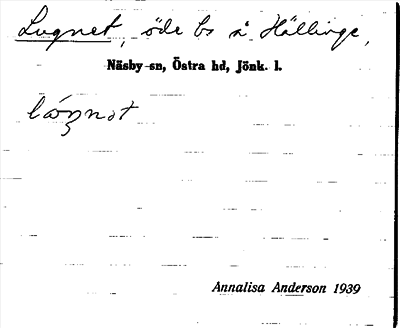 Lugnet, öde bs å Hällinge,
Näsby sn, Östra hd, Jönk. l.
Annalisa Anderson 1939